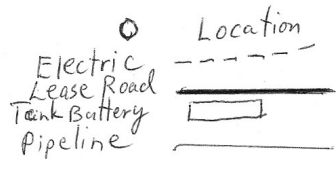 Location
Electric
Lease Road
Tank Battery
Pipeline